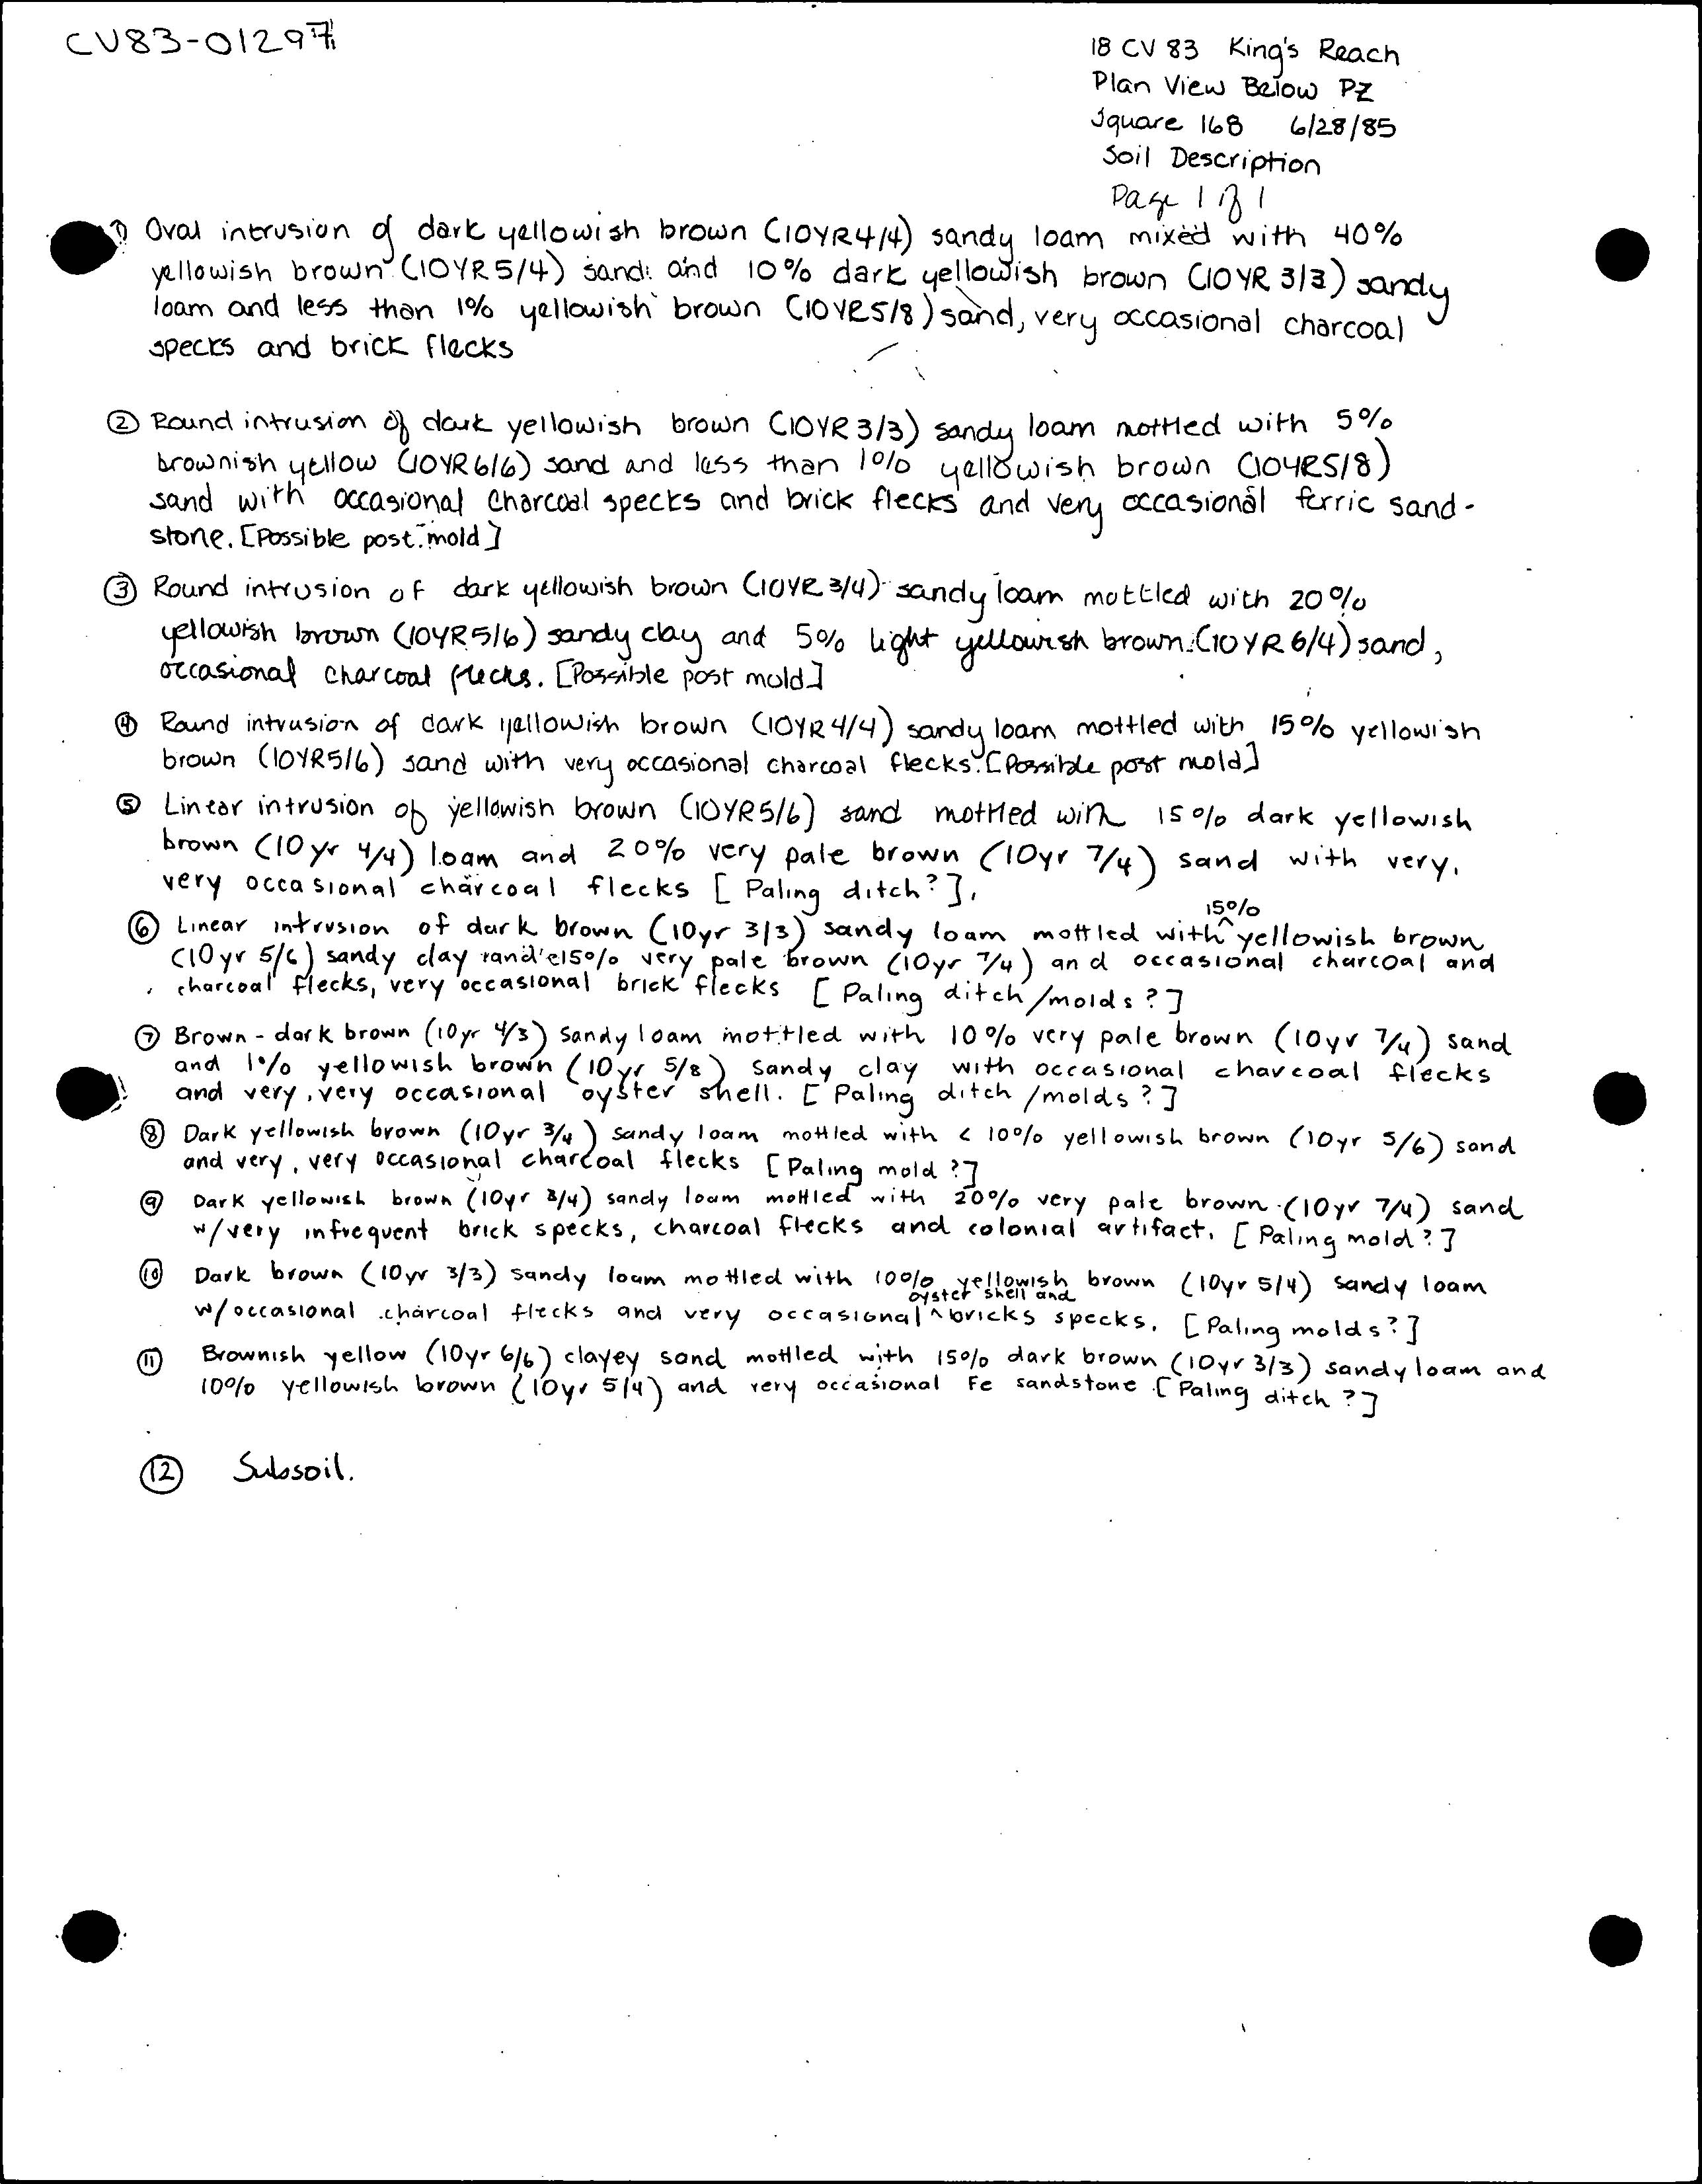 CV83-01297
18 CV 83 King's Reach
Plan View Below PZ
Square 168 6/28/85
Soil Description
Page 1 of 1
① Oval intrusion of dark yellowish brown (10YR4/4) sandy loam mixed with 40%
yellowish brown (10YR 5/4) sand and 10% dark yellowish brown (10YR 3/3) sandy
loam and less than 1% yellowish brown (10YR5/8) sand, very occasional charcoal
specks and brick flecks
② Round intrusion of dark yellowish brown (10YR 3/3) sandy loam mottled with 5%
brownish yellow (10YR6/6) sand and less than 1% yellowish brown (10YR5/8)
sand with occasional charcoal specks and brick flecks and very occasional ferric sand-
stone. [Possible post mold]
③ Round intrusion of dark yellowish brown (10YR 3/4) sandy loam mottled with 20%
yellowish brown (10YR5/6) sandy clay and 5% light yellowish brown (10YR 6/4) sand,
occasional charcoal flecks. [Possible post mold]
④ Round intrusion of dark yellowish brown (10YR4/4) sandy loam mottled with 15% yellowish
brown (10YR5/6) sand with very occasional charcoal flecks. [Possible post mold]
⑤ Linear intrusion of yellowish brown (10YR5/6) sand mottled with 15% dark yellowish
brown (10yr 4/4) loam and 20% very pale brown (10yr 7/4) sand with very,
very occasional charcoal flecks [Paling ditch?].
15%
⑥ Linear intrusion of dark brown (10yr 3/3) sandy loam mottled with ^ yellowish brown
(10yr 5/6) sandy clay and 15% very pale brown (10yr 7/4) and occasional charcoal and
charcoal flecks, very occasional brick flecks [Paling ditch/molds?]
⑦ Brown - dark brown (10yr 4/3) sandy loam mottled with 10% very pale brown (10yr 7/4) sand
and 1% yellowish brown (10yr 5/8) sandy clay with occasional charcoal flecks
and very, very occasional oyster shell. [Paling ditch/molds?]
⑧ Dark yellowish brown (10yr 3/4) sandy loam mottled with < 10% yellowish brown (10yr 5/6) sand
and very, very occasional charcoal flecks [Paling mold?]
⑨ Dark yellowish brown (10yr 3/4) sandy loam mottled with 20% very pale brown (10yr 7/4) sand
w/very infrequent brick specks, charcoal flecks and colonial artifact. [Paling mold?]
⑩ Dark brown (10yr 3/3) sandy loam mottled with 10% yellowish brown (10yr 5/4) sandy loam
oyster shell and
w/occasional charcoal flecks and very occasional ^ bricks specks. [Paling molds?]
⑪ Brownish yellow (10yr 6/6) clayey sand mottled with 15% dark brown (10yr 3/3) sandy loam and
10% yellowish brown (10yr 5/4) and very occasional Fe sandstone [Paling ditch?]
⑫ Subsoil.